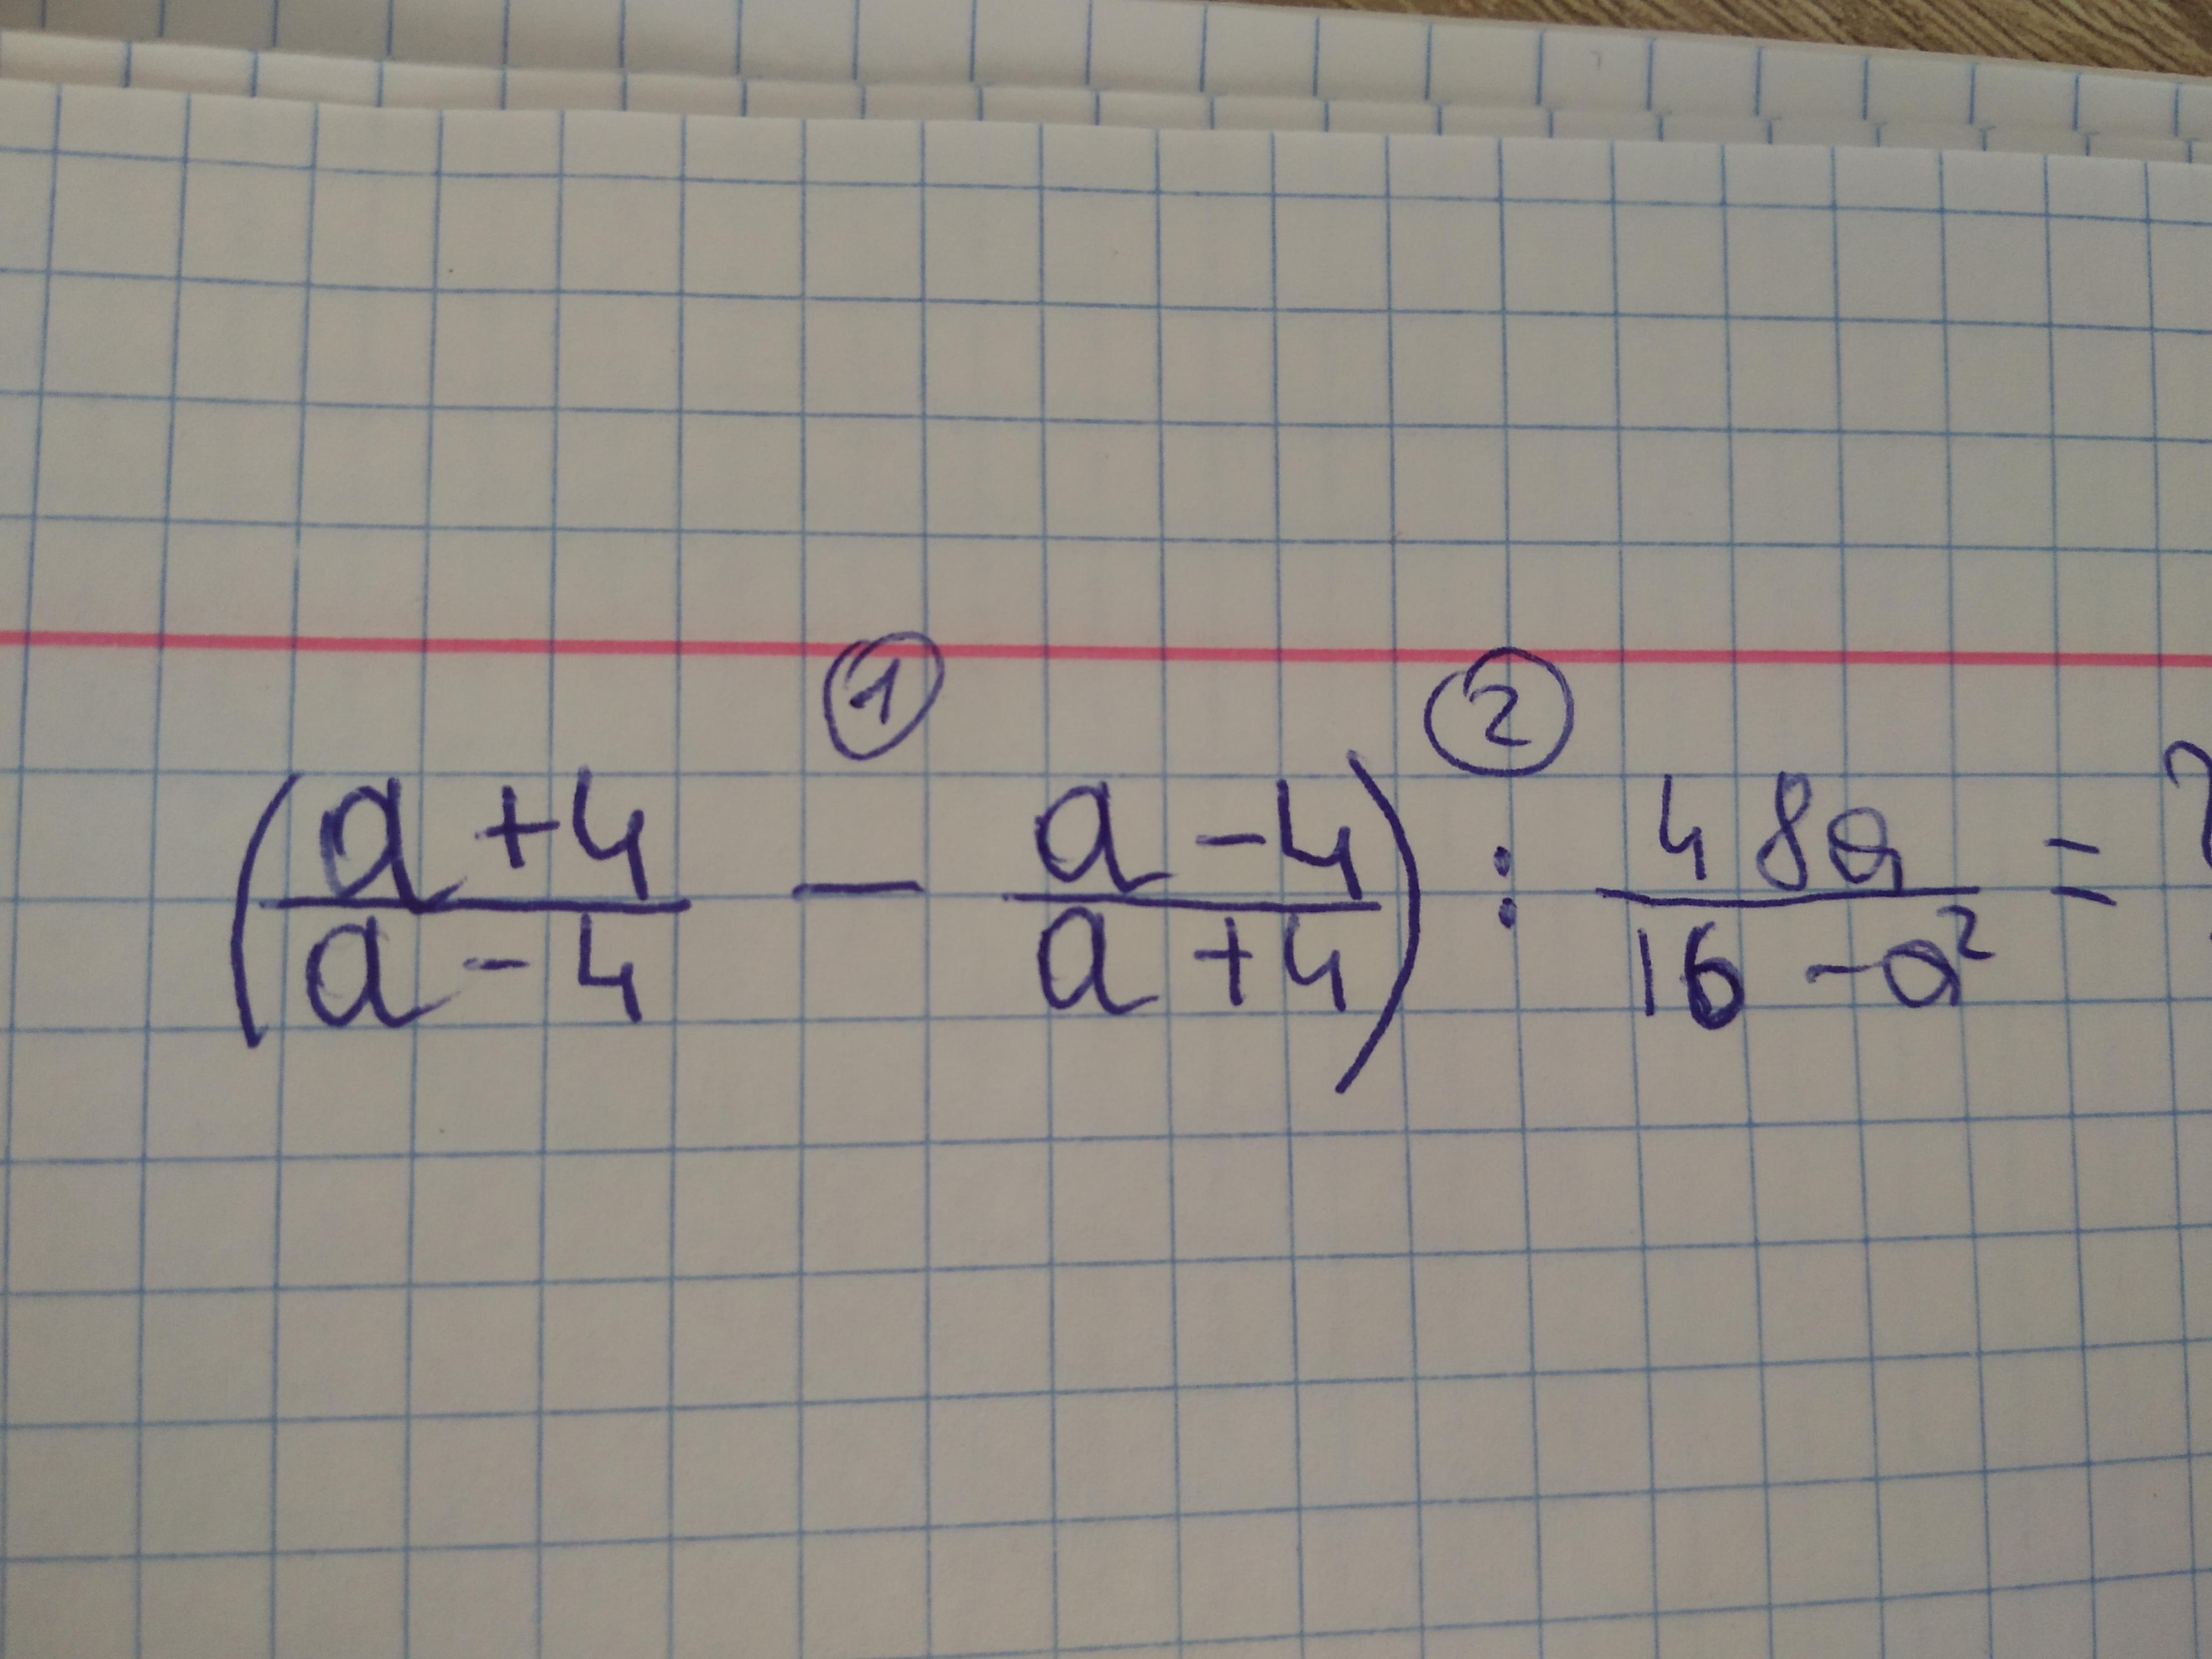 ① ②
(a+4/a-4 - a-4/a+4) : 48a/16-a² = ?